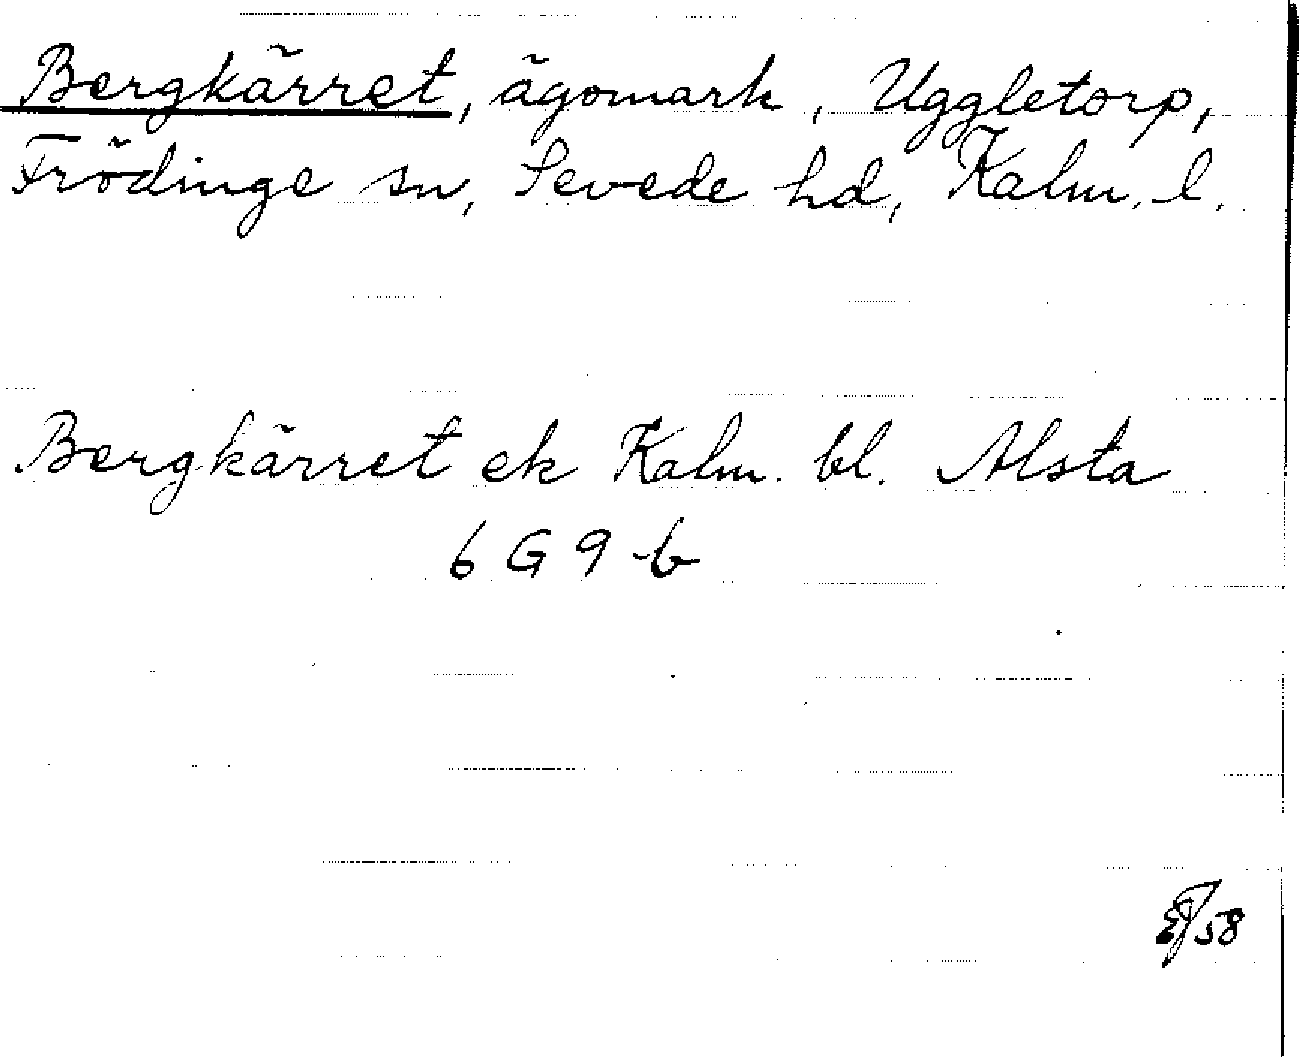 Bergkärret, ägomark, Uggletorp,
Frödinge sn, Sevede hd, Kalm. l.
Bergkärret ek Kalm. bl. Alsta
6 G 9 b
EJ 58